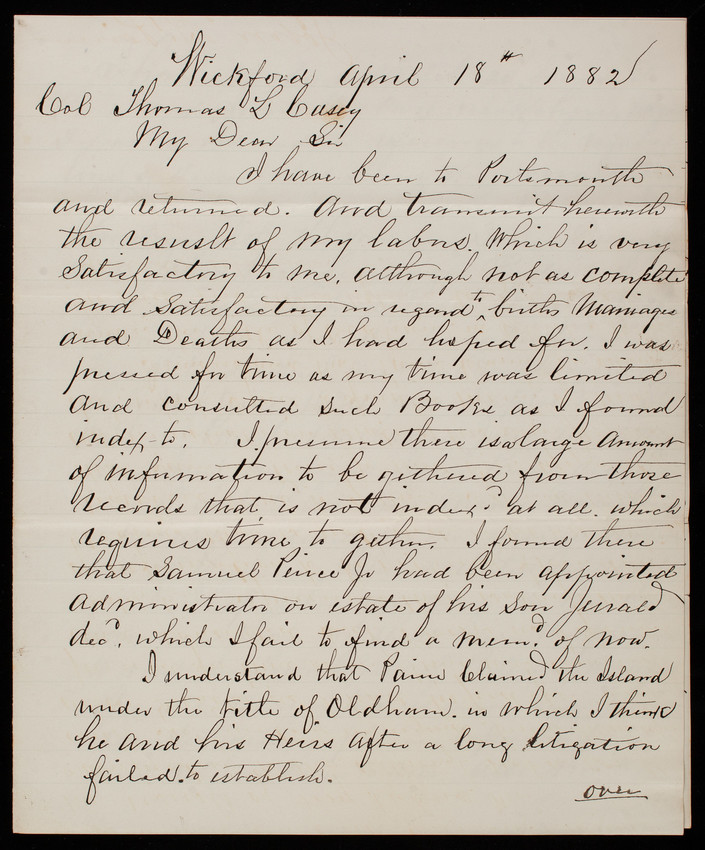 Wickford April 18th 1882
Col Thomas L Casey
My Dear Sir
I have been to Portsmouth
and returned. And transmit herewith
the resuslt of my labors. Which is very
Satisfactory to me, although not as complete
and Satisfactory in regard to births Marriages
and Deaths as I had hoped for. I was
pressed for time as my time was limited
and consulted such Books as I found
index to. I presume there is a large amount
of information to be gethered from those
records that is not indexd at all. which
requires time to gether. I found there
that Samuel Peirce Jr had been appointed
administrator on estate of his Son Jerald
decd. which I fail to find a memd. of now.
I understand that Paine Claimed the Island
under the title of Oldham. in which I think
he and his Heirs after a long litigation
failed to establish.
over